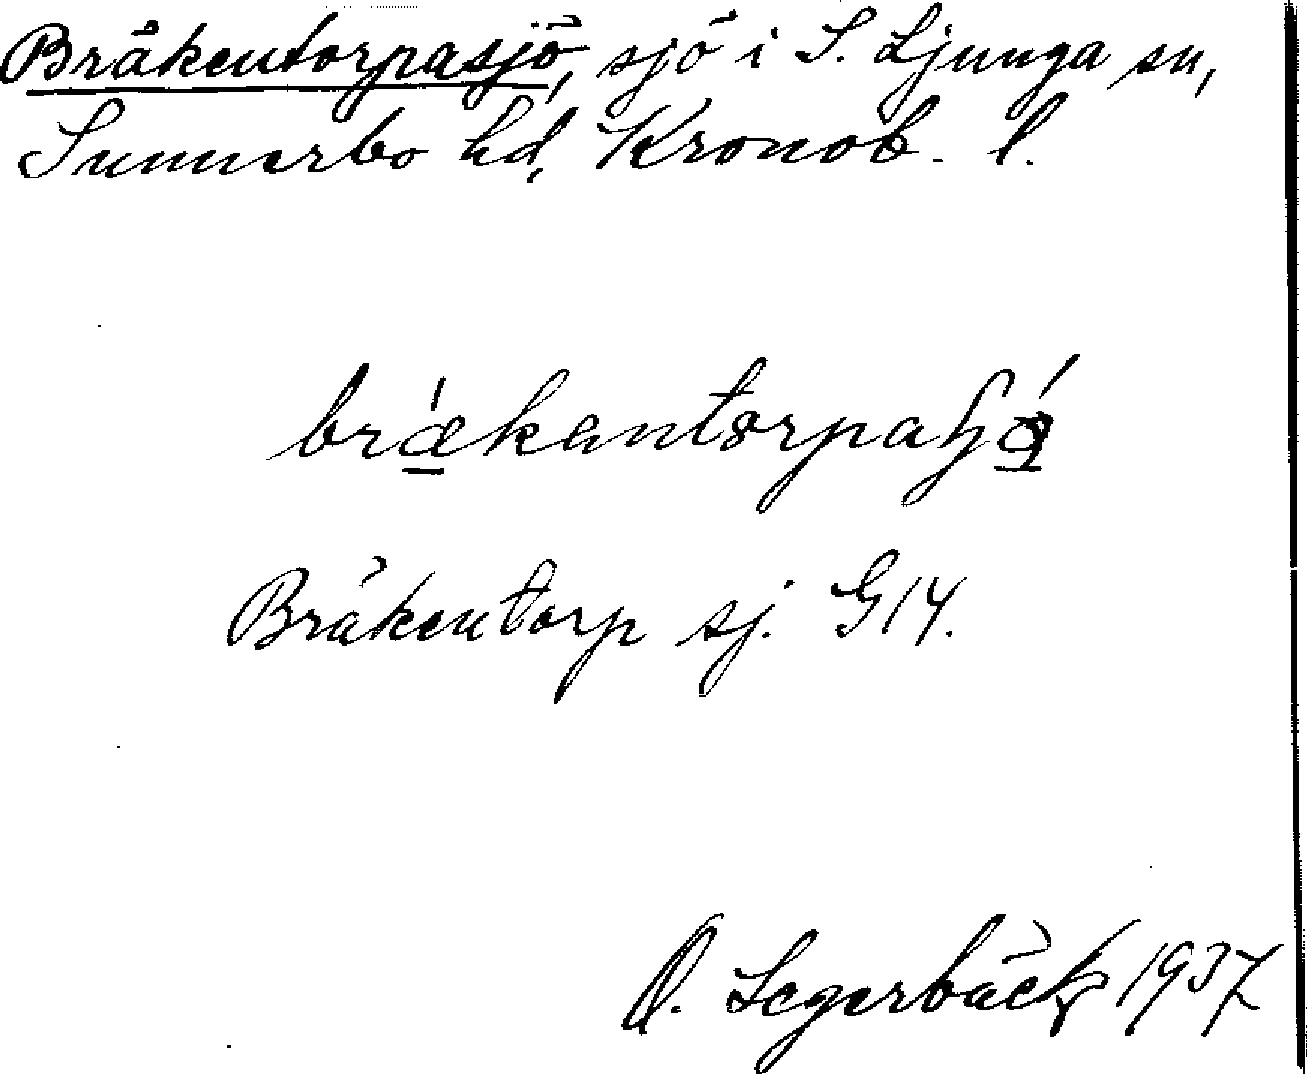 Bråkentorpasjö, sjö i S. Ljunga sn,
Sunnerbo hd, Kronob. l.
Bråkentorp sj. G14.
Segerbäck 1937